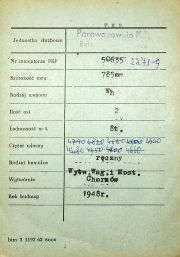 P K P
Jednostka służbowa
Parowozownia
Nr inwentarza PKP 50635
Szerokość toru 785mm
Rodzaj wagonu Wh
Ilość osi 2
Ładowność w t. 8t.
Ciężar własny
Rodzaj hamulca ręczny
Wytw.Wag.i Most.
Wytwórnia Chorzów
Rok budowy 1948r.